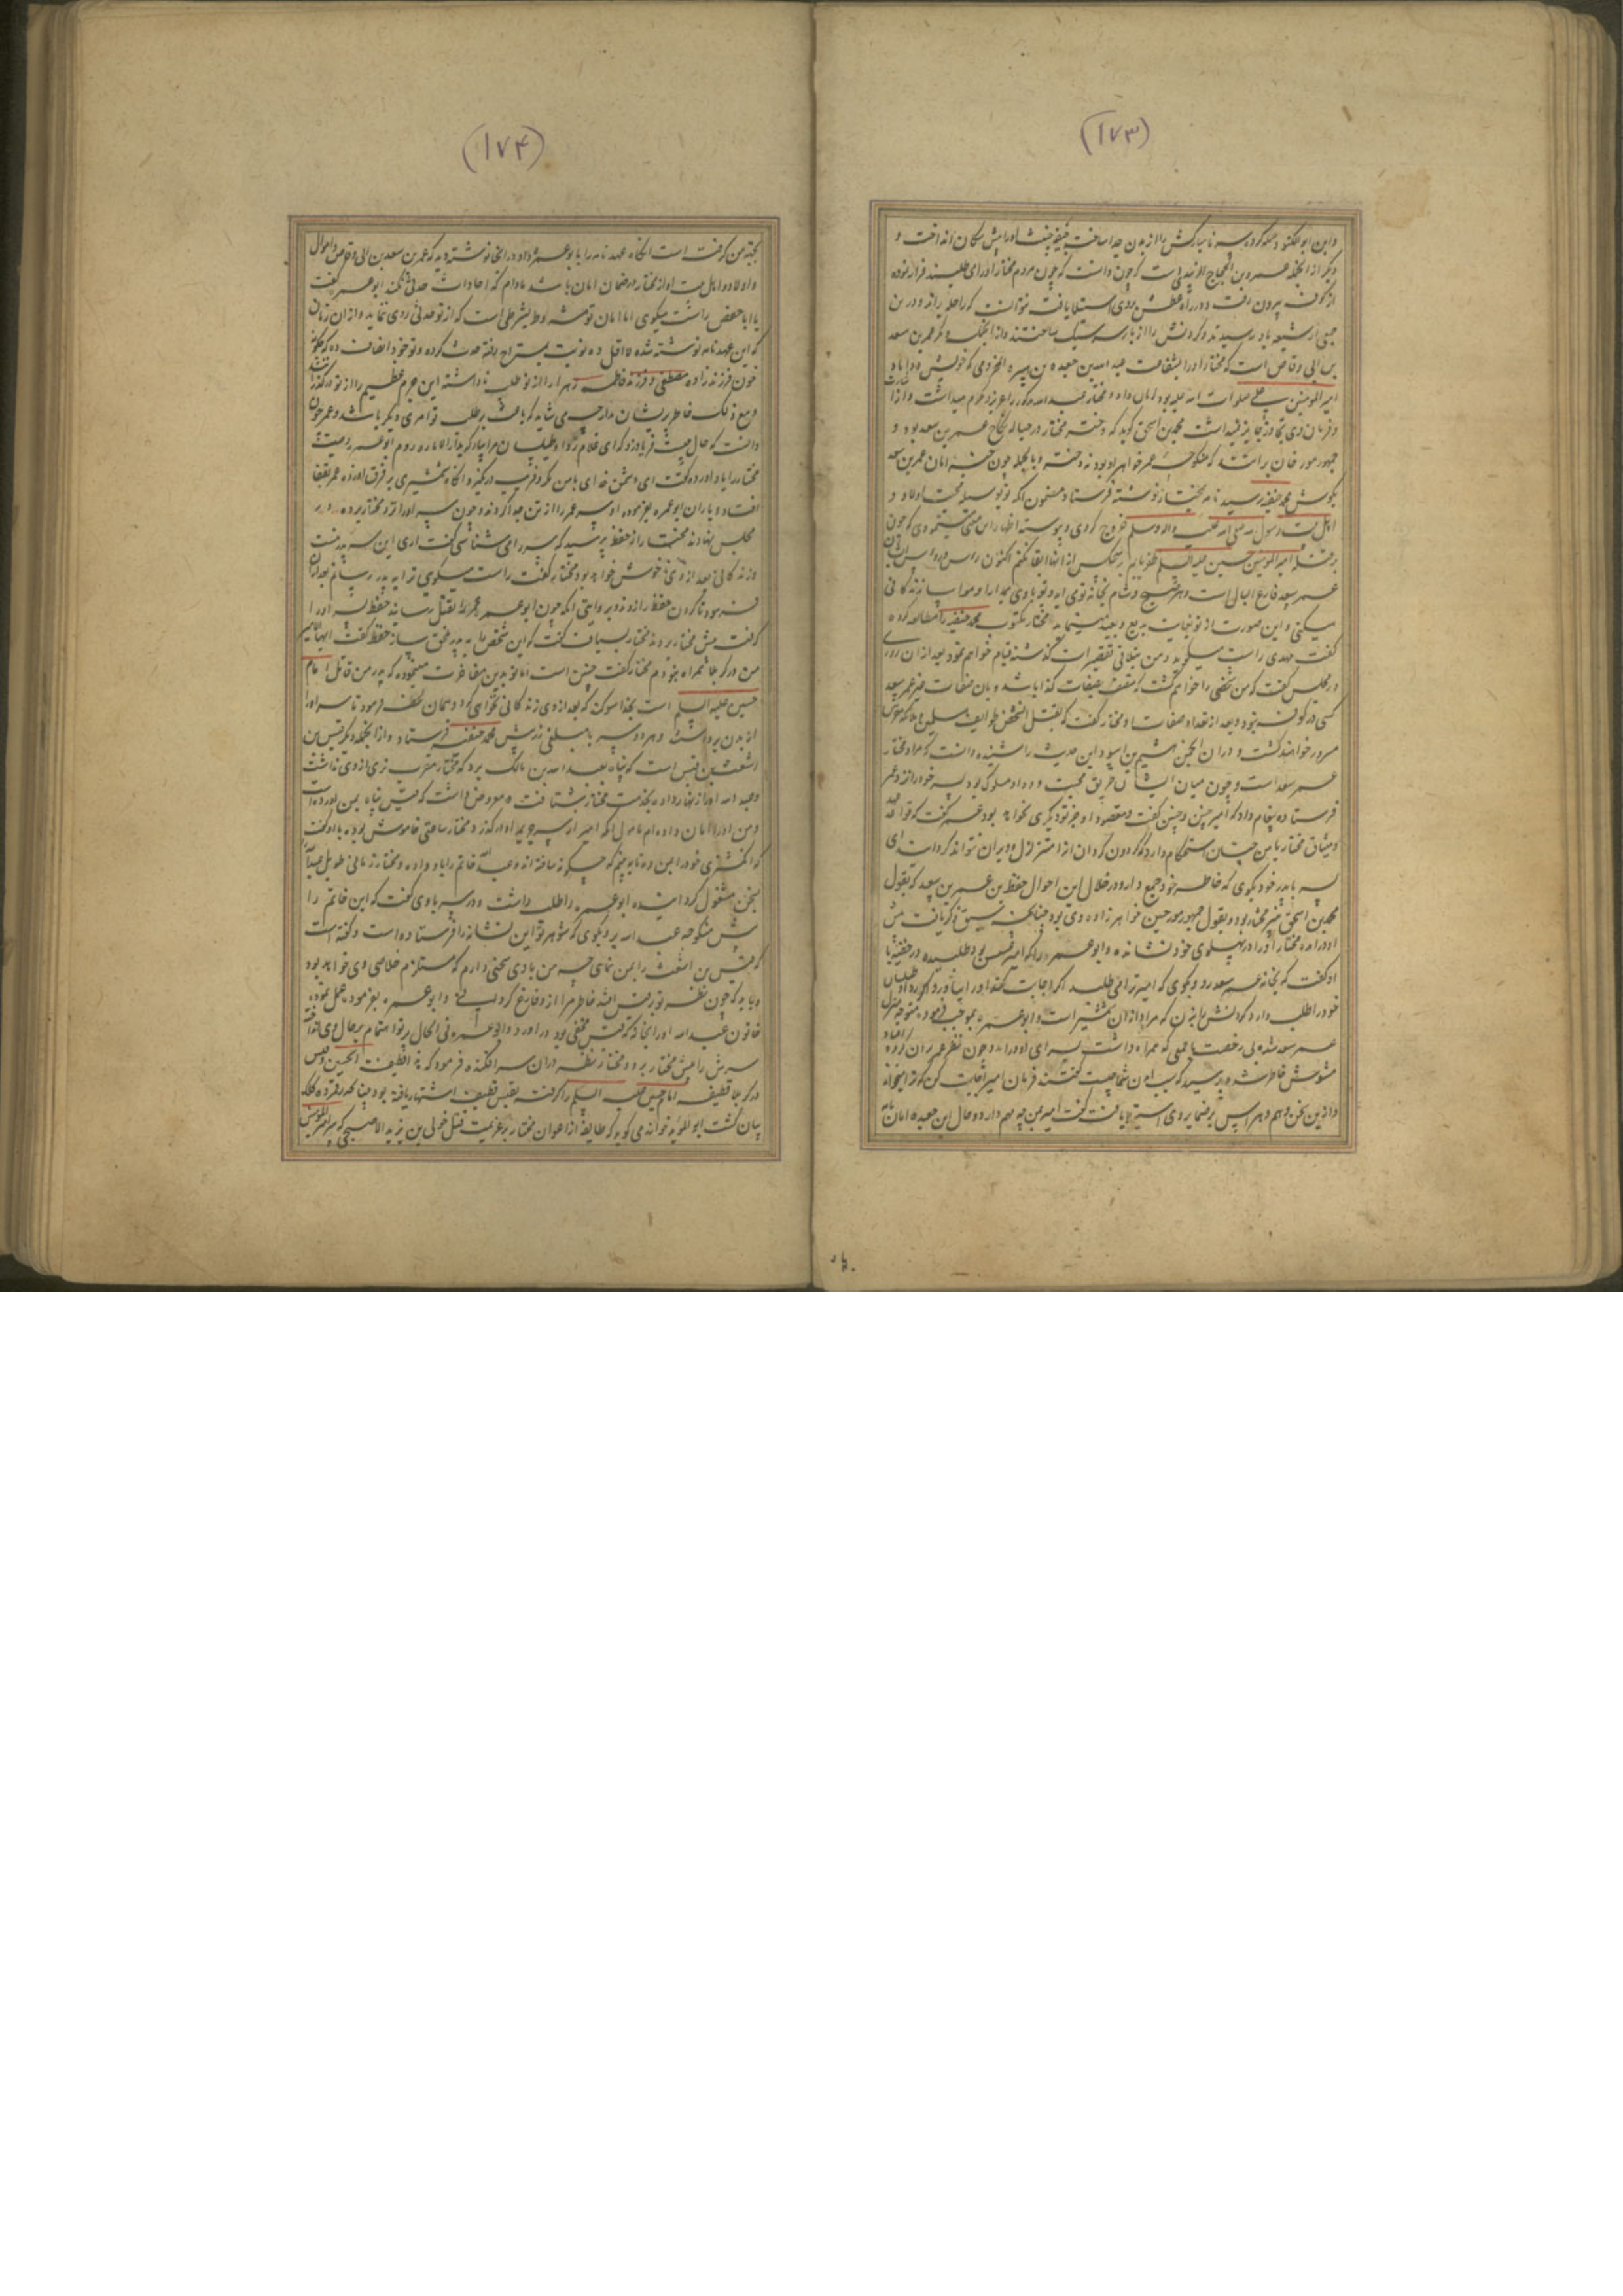 (۱۷۳)
و ابن ابو الکنود حمله کرده سر نامبارکش را از بدن جدا ساخت جیفه خبیثه او را پیش سگان انداخت و
دیگر از انجمله عمرو بن الحجاج الزبیدی است که چون دانست که چون مردم مختار او را می طلبند فرار نموده
از کوفه بیرون رفت و در راه عطش بر وی استیلا یافت نتوانست که راحله براند و در این
جمعی از شیعه بدو رسیدند و گردنش را از بار سر سبک ساختند و از انجمله دیگر عمر بن سعد
بن ابی وقاص است که مختار او را بشفاعت عبد الله بن جعده بن هبیره المخزومی که خویش
امیر المؤمنین علی صلوات الله علیه بود امان داد و مختار عبد الله مذکور را عزیز و مکرم میداشت و از
فرمان وی تجاوز جایز نمیداشت محمد بن اسحق گوید که دختر مختار در حباله نکاح عمر بن سعد بود و
جمهور مورخان برانند که منکوحه عمر خواهر او بود نه دختر و بالجمله چون خبر امان عمر بن سعد
بگوش محمد حنفیه رسید نامه بمختار نوشته فرستاد مضمون آنکه تو بوسیله محبت اولاد و
اهل بیت رسول الله صلی الله علیه و اله وسلم خروج کردی و پیوسته اظهار این معنی مینمودی که چون
بر قتله امیر المؤمنین حسین علیه السلم ظفر یابم هیچکس از انها ابقا نکنم اکنون
عمر سعد فارغ البال است و هر صبح و شام بخانه تو می آید و تو با وی بمدارا و مواسا زندگانی
میکنی و این صورت از تو بغایت بدیع و بعید مینماید مختار مکتوب محمد حنفیه را مطالعه کرده
گفت مهدی راست میگوید و من بتلافی تقصیرات گذشته قیام خواهم نمود بعد از ان روزی
در مجلس گفت که من شخصی را خواهم کشت که متصف بصفات کذا باشد و بان صفات غیر عمر سعد
کسی در کوفه نبود و بعد از تعداد صفات او مختار گفت که بقتل آن شخص طوایف
مسرور خواهند گشت و در ان انجمن هیثم بن اسود این حدیث را شنیده دانست که مراد مختار
عمر سعد است و چون میان ایشان طریق محبت و وداد مسلوک بود پسر خود را نزد عمر
فرستاده پیغام داد که امیر چنین و چنین گفت و مقصود او جز تو دیگری نخواهد بود عمر گفت که قواعد
و میثاق مختار با من چنان استحکام دارد که گردون گردان از ا متزلزل و ویران نتواند کرد ای
پسر با پدر خود بگوی که خاطر خود جمع دارد و در خلال این احوال حفص بن عمر بن سعد که بقول
محمد بن اسحق دختر مختار بود و بقول جمهور مورخین خواهر زاده وی بود چنانکه سبق ذکر یافت پیش
او در امد مختار او را در پهلوی خود نشانده و ابو عمره را که امیر عسس بود طلبیده در خفیه با
او گفت که بخانه عمر سعد رو و بگوی که امیر ترا می طلبد اگر اجابت کند او را بیاور و اگر
خود را طلب دارد گردنش را بزن که مراد از ان شمشیر است و ابو عمره بموجب فرموده متوجه منزل
عمر سعد شده بی رخصت با جمعی که همراه داشت بسرای او در امد و چون نظر عمر بر ان گروه افتاد
مشوش خاطر شده پرسید که سبب آمدن شما چیست گفتند فرمان امیر اجابت کن که ترا میخواند
و از این سخن وهم و هراس بر ضمیر وی استیلا یافت گفت امیر با من چه مهم دارد و حال ابن جعده امان نامه
(۱۷۴)
بجهت من گرفته است انگاه عهد نامه را بابو عمره داد و در انجا نوشته بود که عمر بن سعد بن ابی وقاص و اموال
و اولاد و اهل بیت او از مختار در ضمان امان باشد مادام که احداث حدثی نکند ابو عمره گفت
یا ابا حفص راست میگوی اما امان تو مشروط بشرطی است که از تو حدثی روی ننماید و از ان زمان
که این عهد نامه نوشته شده لا اقل ده نوبت بمستراح رفته حدث کرده و تو خود انصاف ده که چگونه
خون فرزند زاده مصطفی و فرزند فاطمه زهرا را از تو طلب ناداشته این جرم عظیم را از تو درگذرانند
و مع ذلک خاطر پریشان مدار چه می شاید که باعث بر طلب تو امری دیگر باشد و عمر چون
دانست که حال چیست فریاد زد که ای غلام ردا و طیلسان مرا بیار که بدار الاماره روم ابو عمره وصیت
مختار را یاد اورده گفت ای دشمن خدای با من مکر و فریب در گیرد انگاه شمشیری بر فرق او زده عمر بقفا
افتاد و یاران ابو عمره بفرموده او سر عمر را از تن جدا کردند و چون سر او را نزد مختار برده در
مجلس بنهادند مختار از حفص پرسید که سر را می شناسی گفت اری این سر پدر منست
و زندگانی بعد از وی ناخوش خواهد بود مختار گفت راست میگوی ترا به پدر رسانم بعد از ان
فرمود تا گردن حفص را زدند و بروایتی انکه چون ابو عمره عمر را بقتل رسانید حفص پسر او را
گرفته پیش مختار برد مختار بسیاف گفت که این شخص را به پدر ملحق ساز حفص گفت ایها الامیر
من در کربلا همراه نبودم مختار گفت چنین است اما تو بدین مفاخرت مینموده که پدر من قاتل امام
حسین علیه السلم است بخدا سوگند که بعد از وی زندگانی نخواهی کرد و همان لحظه فرمود تا سر او را
از بدن برداشتند و هر دو سر با مبلغی زر پیش محمد حنفیه فرستاد و از انجمله دیگر قیس بن
اشعث بن قیس است که پناه بعبد الله بن مالک برد که مختار مقرب تری از وی نداشت
و عبد الله او را زنهار داده بخدمت مختار شتافت و معروض داشت که قیس پناه بمن اورده است
و من او را امان داده ام مامول انکه امیر از سر جریمه او درگذرد مختار ساعتی خاموش بوده با او گفت
که انگشتری خود را بمن ده تا ببینم که چگونه ساخته اند و عبد الله خاتم را باو داده و مختار زمانی طویل عبد الله را
بسخن مشغول گردانیده ابو عمره را طلب داشت و در سر باوی گفت که این خاتم را
پیش منکوحه عبد الله برده بگوی که شوهر تو این نشانه را فرستاده است و گفته است
که قیس بن اشعث را بمن نمای چه من با وی سخنی دارم که مستلزم خلاصی وی خواهد بود
و باید که چون نظر تو بر قیس افتد خاطر مرا از او فارغ گردانی و ابو عمره بفرموده عمل نموده
خاتون عبد الله او را بخانه که قیس مخفی بود در اورد و ابو عمره فی الحال
سرش را پیش مختار برد و مختار نظر دران سر افکنده فرمود که به قطیفت الحسین و قیس
در کربلا قطیفه امام حسین علیه السلم را گرفته بقیس قطیفه اشتهار یافته بود چنانچه
بیان گشت ابو المؤید خوارزمی گوید که طایفه از اعوان مختار بر عزیمت قتل خولی بن یزید الاصبحی که سر امیر المؤمنین